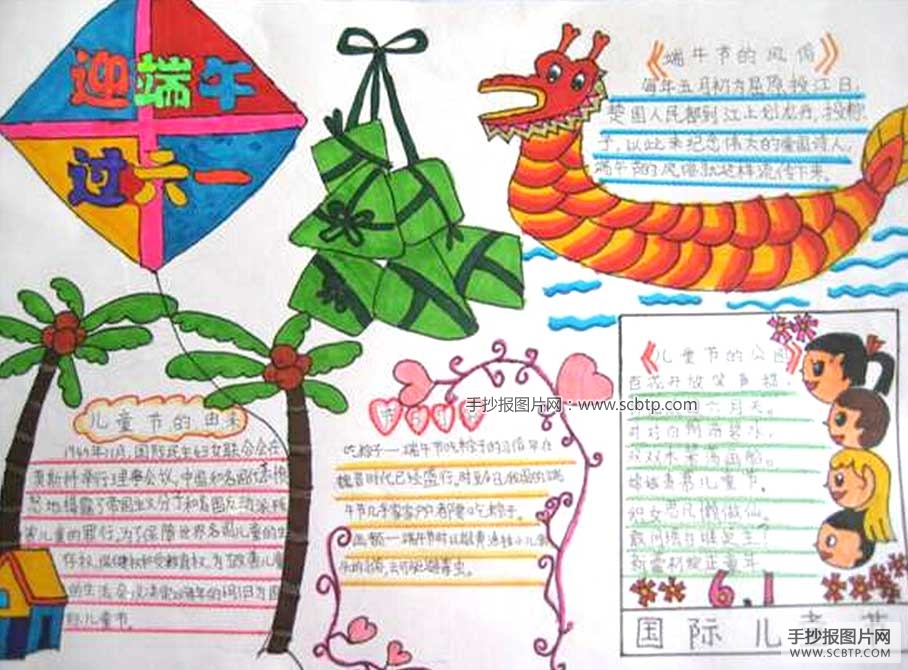 迎端午
过六一
《端午节的风俗》
每年五月初为屈原投江日,
楚国人民都到江上划龙舟,投粽
子,以此来纪念伟大的爱国诗人。
端午节的风俗就这样流传下来。
儿童节的由来
1949年11月,国际民主妇女联合会在
莫斯科举行理事会议,中国和各国代表愤
怒地揭露了帝国主义分子和各国反动派残
害儿童的罪行。为了保障世界各国儿童的生
存权、保健权和受教育权,为了改善儿童
的生活会议决定以每年的6月1日为国
际儿童节。
手抄报图片网:www.scbtp.com
吃粽子——端午节吃粽子的习俗早在
魏晋时代已经盛行,时至今日,我国的端
午节几乎家家户户都要吃粽子。
《儿童节的公园》
百花开放笑声稠,
六月天。
双双木桨荡画船。
儿童节,
织女思凡懒做仙。
敢问瑛花谁是主?
新蕾初绽正童年
6.1
国际儿童节
手抄报图片网
WWW.SCBTP.COM